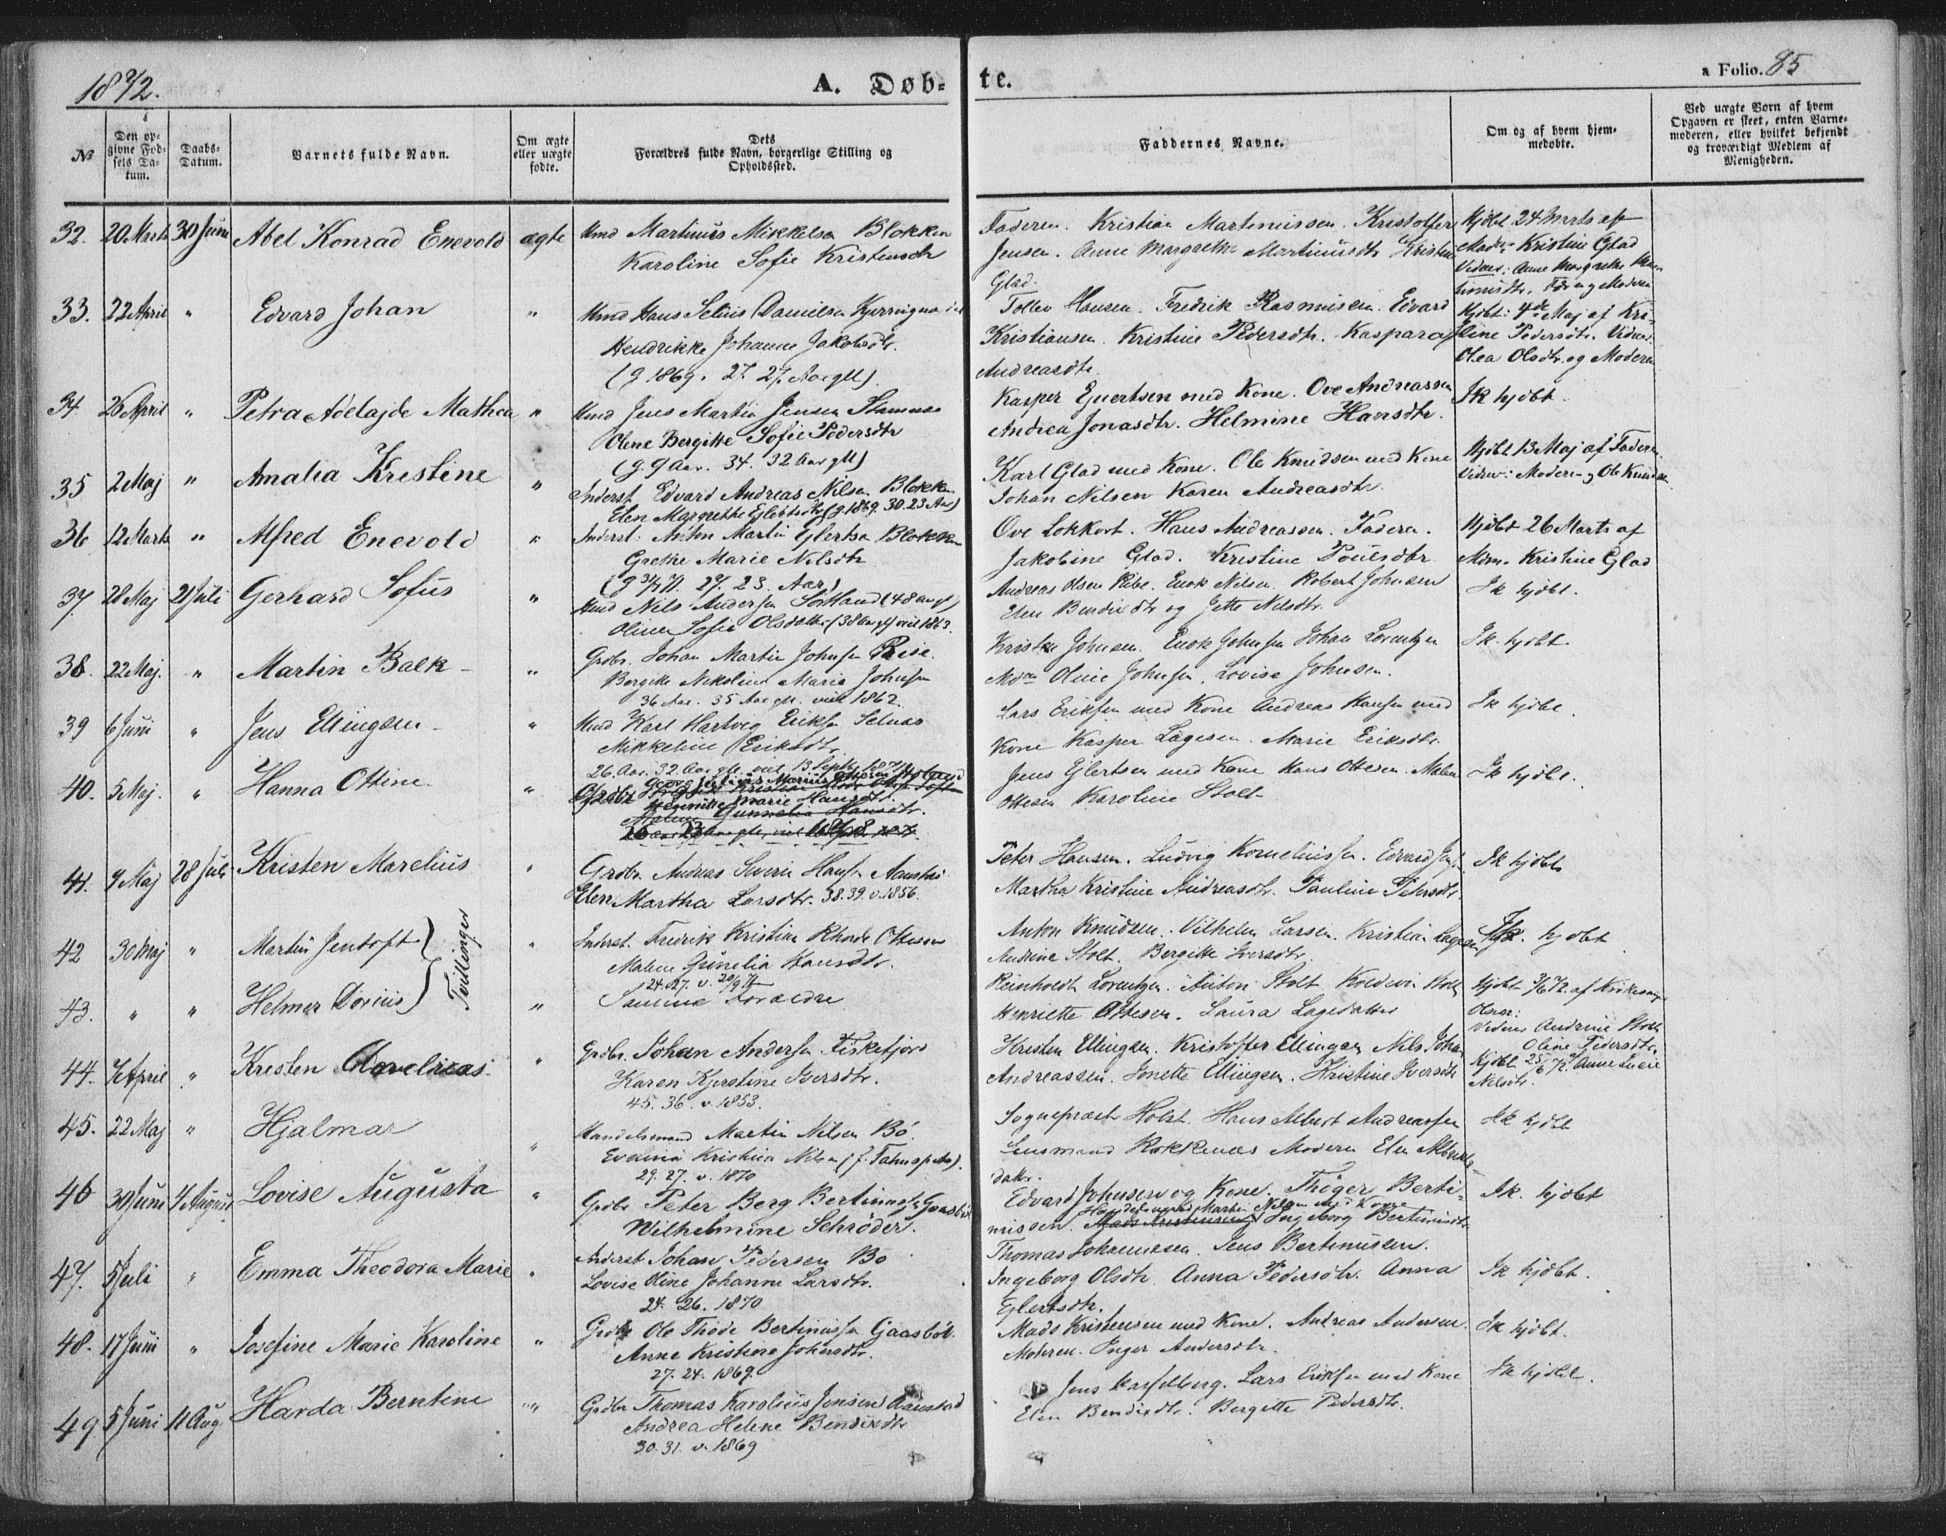 1872.
A. Døb-
te.
a Folio. 85
№
Den op-
givne Fød-
sels Da-
tum.
Daabs-
Datum.
Barnets fulde Navn.
Om ægte
eller uægte
fødte.
Dets
Forældres fulde Navn, borgerlige Stilling og
Opholdssted.
Faddernes Navne.
Om og af hvem hjem-
medøbte.
Ved uægte Børn af hvem
Opgaven er skeet, enten Barne-
moderen, eller hvilket bekjendt
og troværdigt Medlem af
Menigheden.
32. 20 Marts 30 Juni Abel Konrad Enevold ægte
Kmd Martinus Mikkelsen Blokken
Karoline Sofie Kristensdtr
Faderen. Kristian Martinussen. Kristoffer
Jensen. Anne Margrethe Martinusdtr Kristine
Glad.
Hjdbt 24 Marts af
Madm Kristine Glad
Vidner: Anne Margrethe
33. 22 April " Edvard Johan "
Kmd Hans Danielsen
Hendrikke Johanne Jakobsdtr.
(g 1869. 27. 27 Aar gll).
Tollev Hansen. Fredrik Rasmussen. Edvard
Kristiansen. Kristine Pedersdtr. Kaspara
Andreasdtr.
Hjdbt: 4de Maj af Kri-
stine Pedersdtr. Vidner
Olea Olsdtr. og Moderen
34 26 April " Petra Adelajde Mathea "
Kmd Jens Martin Jensen
Olene Bergitte Sofie Pedersdtr
(g. 9 Aar. 34. 32 Aar gll)
Kasper Ejvertsen med Kone. Ove Andreassen
Andrea Jonasdtr. Helmine Hansdtr.
Ik hjdbt.
35 2 Maj " Amalia Kristine "
Inderst Edvard Andreas Nilsen Blokken
Elen Margrethe Ejlertsdtr (g. 1869. 30. 23 Aar)
Karl Glad med Kone. Ole Knudsen med Kone
Johan Nilsen Karen Andreasdtr
Hjdbt 13 Maj af Faderen
Vidner: Moderen og Ole Knudsen
36 12 Marts " Alfred Enevold "
Inderst: Anton Martin Ejlertsen Blokken
Grethe Marie Nilsdtr
Ove Lokkert. Hans Andreassen. Faderen.
Jakobine Glad. Kristine Poulsdtr
Hjdbt 26 Marts af
Mdm. Kristine Glad
37. 28 Maj 21 Juli Gerhard Sofus "
Kmd Nils Andersen Sortland (48 aar gl)
Oline Sofie Olsdatter (38 aar gl) viet 1863.
Andreas Olsen Ribe. Enok Nilsen. Robert Johnsen
Elen Bendixdtr og Jette Nilsdtr.
Ik hjdbt.
38. 22 Maj. " Martin Balk "
Grdbr. Johan Martin Johnsen Reise.
Bergitte Nikoline Maria Johnsen
36 Aar. 35 Aar gle. viet 1862.
Johnsen. Enok Johnsen Johan Lorentzen
Mdm Oline Johnsen, Lovise Johnsen.
Ik. hjdbt.
39 6 Juni " Jens Ellingsen "
Kmd Karl Hartvig Eriksen Selnæs
Mikkeline Eriksdtr.
26. Aar. 32. Aar gle. viet 13 Septb 1871
Lars Eriksen med Kone Andreas Hansen med
Kone Kasper Lagesen. Marie Eriksdtr.
Ik hjdbt.
40. 5 Maj. " Hanna Ottine "
Georg Julius Marius Ottesen
Henriette Marie Hansdtr.
Malene Gunnelia Hansdtr.
Jens Ejlertsen med Kone Hans Ottesen. Malene
Ottesen Karoline Stolt
Ik hjdbt.
41. 9 Maj 28 Juli Kristen Marelius "
Grdbr. Andreas Sverin Hansen
Elen Martha Larsdtr. 38. 39. v. 1856.
Peter Hansen. Ludvig Korneliussen. Edvard
Martha Kristine Andreasdtr. Pauline Petersdtr.
Ik hjdbt
42 30 Maj " Martin Jentoft "
Tvillinger
Inderst. Fredrik Kristian Rhode Ottesen
Malene Gunelia Hansdtr.
24. 27. v. 20/9 71
Anton Knudsen. Vilhelm Larsen. Kristian Lagesen
Andrine Stolt. Bergitte Iversdtr.
Ik. hjdbt
43. " " Helmer Dorius "
Samme Forældre
Reinholdt Lorentzen. Anton Stolt
Henriette Ottesen. Laura Lagedatter
Olsen:
Vidner Andrine Stolt
Oline Pedersdtr.
44. 7 April " Kristen "
Grdbr. Johan Andersen Fiskefjord
Karen Kjerstine Iversdtr.
45. 36. v. 1853.
Kristen Ellingsen. Kristoffer Ellingsen Nils Johan
Andreassen. Jonette Ellingsen. Kristine Iversdtr
Hjdbt 25/6 72 af Anne Lucie
Nilsdtr.
45. 22 Maj " Hjalmar "
Handelsmand Martin Nilsen Bø.
29. 27. v. 1870
Sogneprest Holst. Hans Albert Andreassen
Lensmand Rokkenæs Moderen Elen
datter.
Ik hjdbt
46 30 Juni 4 August Lovise Augusta "
Grdbr Peter Berg Bertinussen Gaasbøl
Wilhelmine Schrøder.
Edvard Johnsen og Kone. Thøger Berti-
nussen. Handelsmand Martin Nilsen med Kone Ingeborg Bertinusdtr
Ik. hjdbt
47. 5 Juli " Emma Theodora Marie "
Inderst Johan Pedersen Bø
Lovise Oline Johanne Larsdtr.
24. 26. 1870
Thomas Johannesen. Jens Bertinussen.
Ingeborg Olsdtr. Anna Pedersdtr. Anna
Ejlertsdtr.
Ik hjdbt.
48. 17 Juni " Josefine Marie Karoline "
Grdbr Ole Thode Bertinussen Gaasbøl.
Anne Kristine Johansdtr.
27. 24. 1869.
Mads Kristensen med Kone. Andreas Andersen.
Moderen. Inger Andersdtr.
Ik hjdbt.
49 5 Juni 11 Aug Harda Berntine "
Grdbr Thomas Karolius Jensen
Andrea Helene Bendixdtr
30. 31. v. 1869
Jens Hasselberg. Lars Eriksen med Kone
Elen Bendixdtr. Bergitte Pedersdtr.
Ik hjdbt.